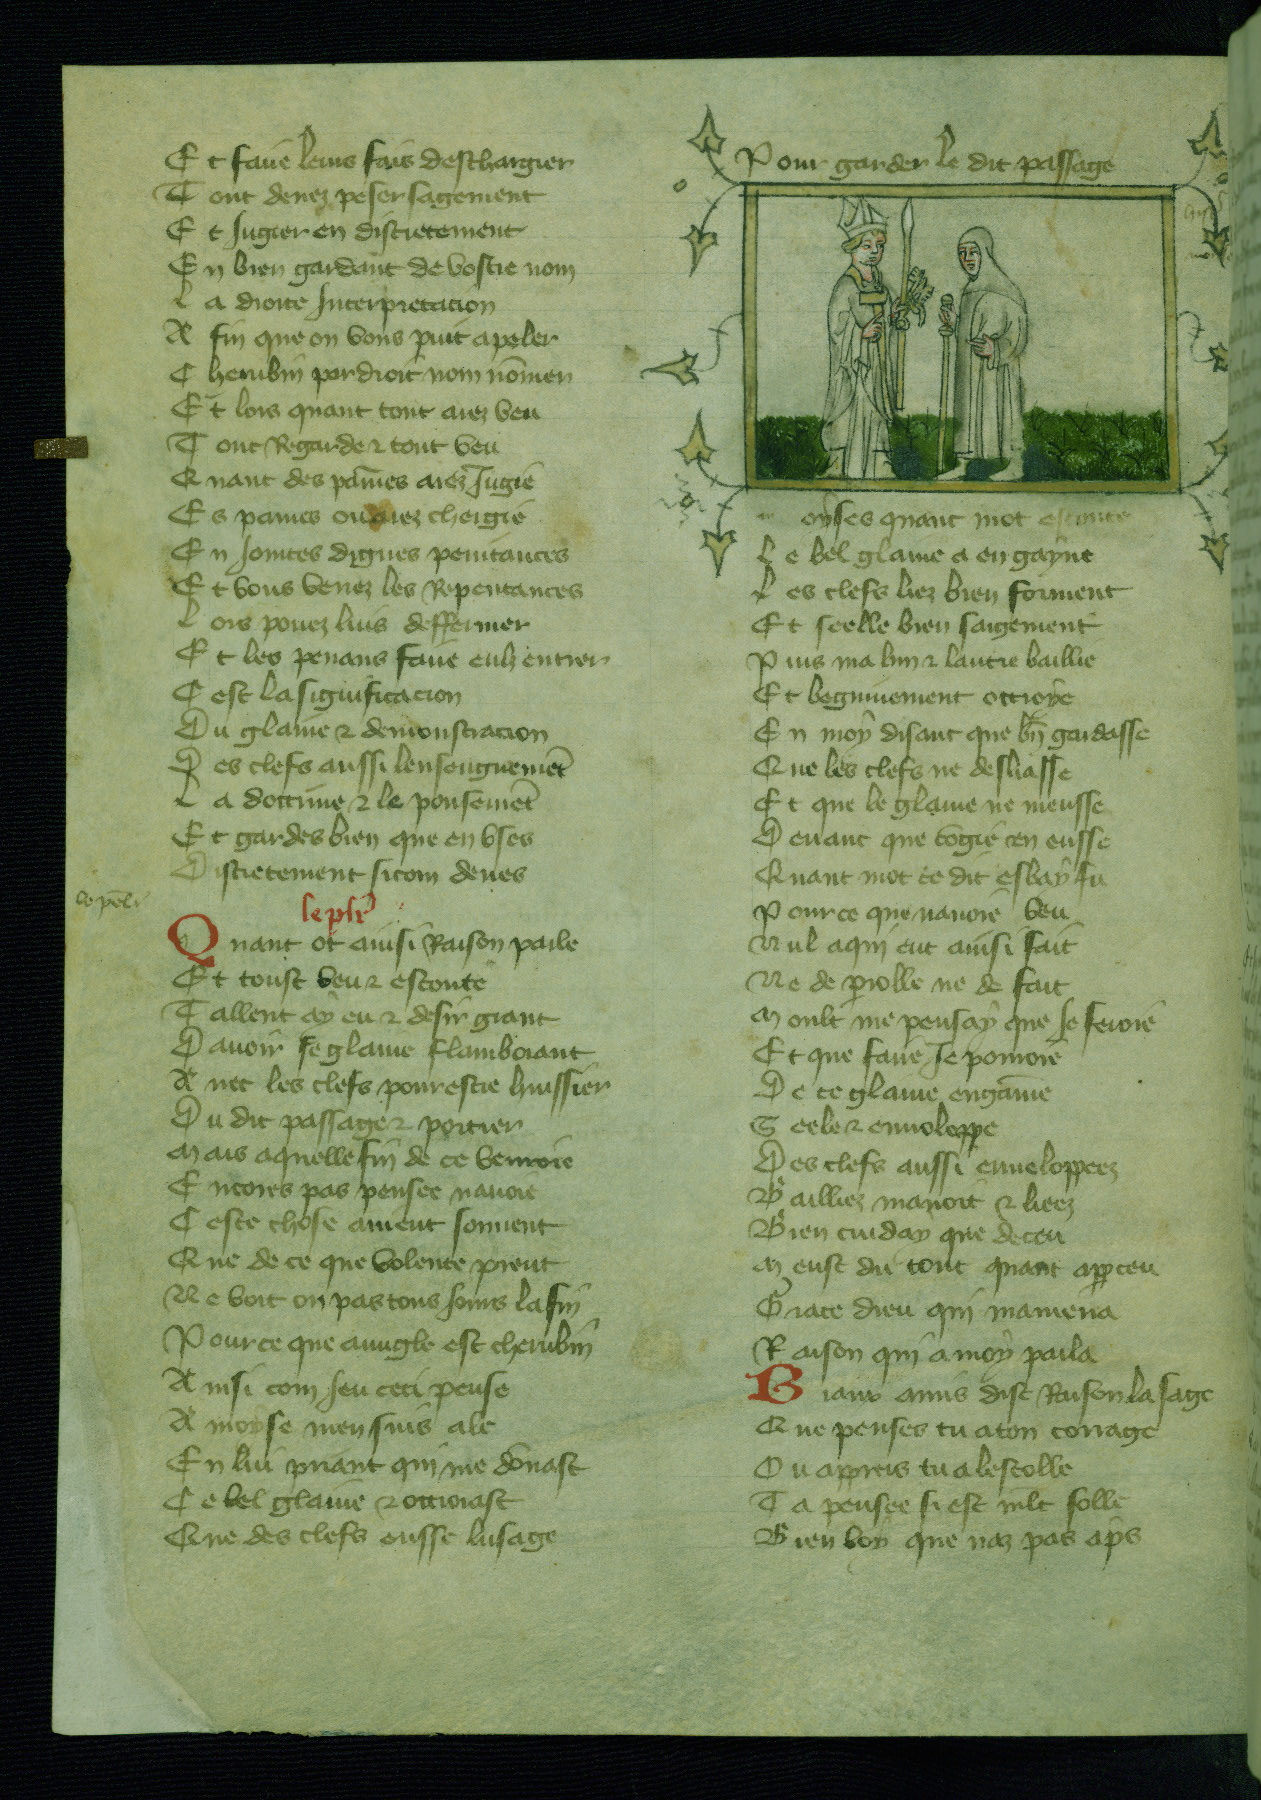 Et faire leurs fais deschargier
Tout devez peser sagement
Et Jugier en discretement
En bien gardant de vostre nom
La droite Interpretacion
A fin que on vous puit apeler
Cherubin par droit nom nōmer
Et lors quant tout arez veu
Tout Regarde & tout veu
Quant des pāines arez Jugie
Es paines ou arez chergie
En Jointes dignes penitances
Et vous verrez les Repentances
Lors pouez luis deffermer
Et les penans faire eulz entrer
C est la signification
Du glaive & demonstracion
Des clefs aussi lenseignemēt
La doctrine & le pensemēt
Et gardes bien que en uses
Discretement sicom deves
le pelī
le plī
Quant ot ainsi Raison parle
Et toust veu & escoute
Tallent ay eu & desir grant
Davoir se glaive flamboiant
Avec les clefs pour estre huissier
Du dit passage & portier
Mais a quelle fin de ce venroie
Encores pas pensee navoie
Ceste chose avient souvent
Que de ce que volente prent
Ne voit on pas tous jours la fin
Pource que avugle est cherubin
Ainsi com Jeu ceci pense
A moyse men suis ale
En lui priant qui me dōnast
Ce bel glaive & octroiast
Que des clefs eusse lusage
Pour garder le dit passage
oyses quant mot escoute
Le bel glaive a en gayne
Les clefs liez bien forment
Et seelle bien saigement
Puis ma lun & lautre baillie
Et begninement octroye
En moy disant que bn̄ gardasse
Que les clefs ne desliasse
Et que le glaive ne meusse
Devant que congie en eusse
Quant mot ce dit esbay fu
Pource que navoie veu
Nul a qui eut ainsi fait
Ne de parolle ne de fait
Moult me pensay que Je feroie
Et que faire Je pourroie
De ce glaive engāine
Seele & enveloppe
Des clefs aussi enveloppeez
Bailliez mavoit & lieez
Bien cuiday que deceu
Meust du tout quant apperceu
Grace dieu qui mamena
Raison qui a moy parla
Biaux amis dist Raison la sage
Que penses tu a ton corrage
Ou appreis tu a lescolle
Ta pensee si est mlt folle
Bien voy que naz pas apīs